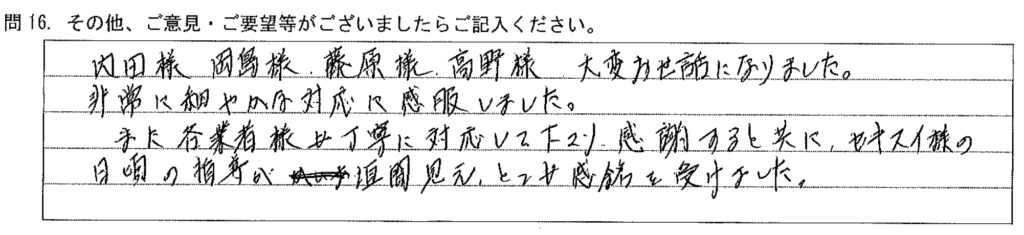 問16. その他、ご意見・ご要望等がございましたらご記入ください。
内田様 岡島様、藤原様、高野様 大変お世話になりました。
非常に細やかな対応に感服しました。
また各業者様も丁寧に対応して下さり、感謝すると共に、セキスイ様の
日頃の指導が垣間見え、とても感銘を受けました。